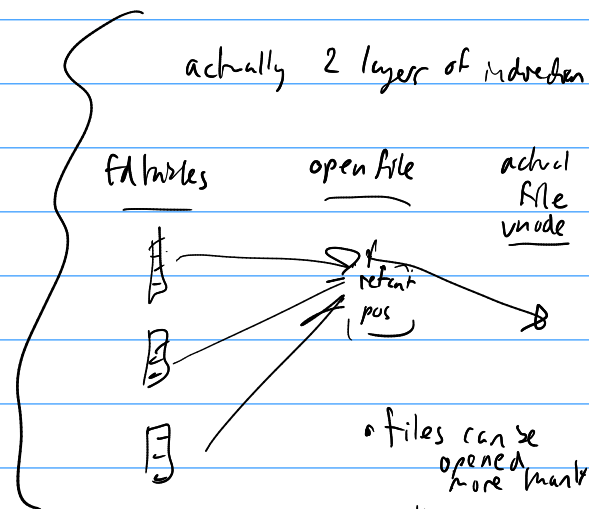 actually 2 layers of indirection
fd tables
open file
actual
file
vnode
refcnt
pos
• files can be
opened
more